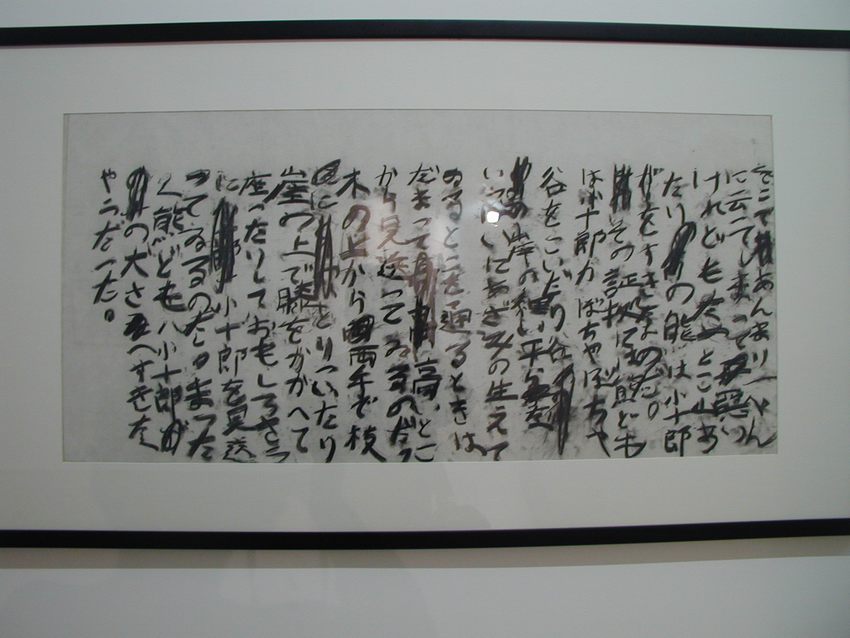 そこであんまり一ぺん
に云てしまって悪い
けれどもなめとこ山あ
たりの熊は小十郎
がをすきなのだ。
その証拠には熊ども
は小十郎がぼちゃぼちゃ
谷をこいだり谷
の岸の細い平らな
いっぱいにあざみの生えて
ゐるとこを通るときは
だまって高いとこ
から見送ってゐるのだ。
木の上から両手で枝
にとりついたり
崖の上で膝をかかへて
座ったりしておもしろさう
に小十郎を見送
ってゐるのだ。まった
く熊どもハ小十郎が
の犬さへすきな
やうだった。